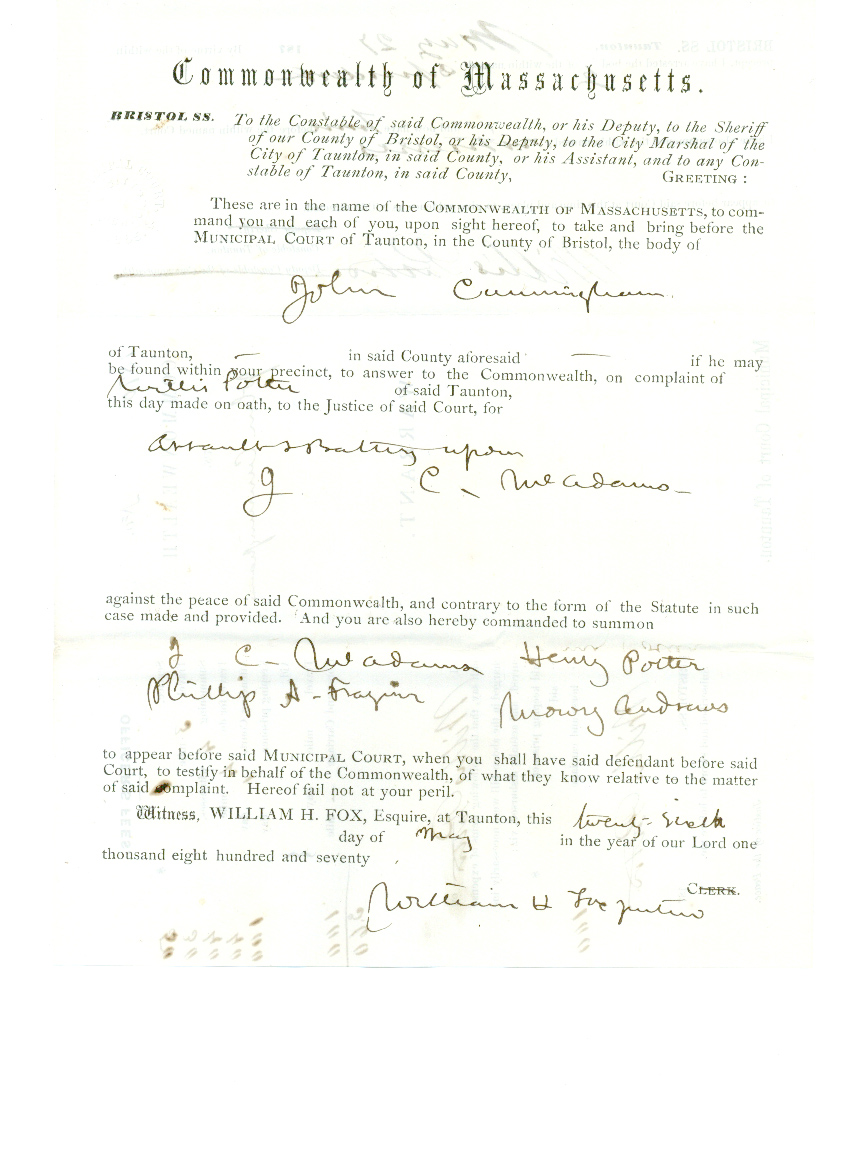 Commonwealth of Massachusetts.
BRISTOL SS. To the Constable of said Commonwealth, or his Deputy, to the Sheriff
of our County of Bristol, or his Deputy, to the City Marshal of the
City of Taunton, in said County, or his Assistant, and to any Con-
stable of Taunton, in said County, GREETING:
These are in the name of the COMMONWEALTH OF MASSACHUSETTS, to com-
mand you and each of you, upon sight hereof, to take and bring before the
MUNICIPAL COURT of Taunton, in the County of Bristol, the body of
John Cunningham
of Taunton, — in said County aforesaid — if he may
be found within your precinct, to answer to the Commonwealth, on complaint of
Willis Potter of said Taunton,
this day made on oath, to the Justice of said Court, for
Assault & Battery upon
J C. McAdams
against the peace of said Commonwealth, and contrary to the form of the Statute in such
case made and provided. And you are also hereby commanded to summon
J C. McAdams Henry Potter
Phillip A. Frazier Mowry Andrews
to appear before said MUNICIPAL COURT, when you shall have said defendant before said
Court, to testify in behalf of the Commonwealth, of what they know relative to the matter
of said complaint. Hereof fail not at your peril.
Witness, WILLIAM H. FOX, Esquire, at Taunton, this twenty-sixth
day of May in the year of our Lord one
thousand eight hundred and seventy
CLERK.
William H Fox Justice